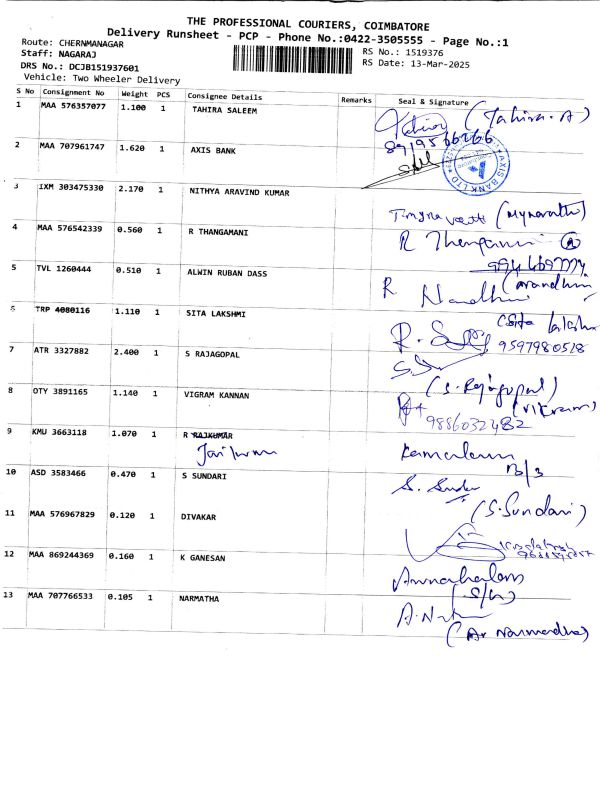 THE PROFESSIONAL COURIERS, COIMBATORE
Delivery Runsheet - PCP - Phone No.:0422-3505555 - Page No.:1
Route: CHERNMANAGAR
RS No.: 1519376
Staff: NAGARAJ
RS Date: 13-Mar-2025
DRS No.: DCJB151937601
Vehicle: Two Wheeler Delivery
S No Consignment No Weight PCS Consignee Details Remarks Seal & Signature
1 MAA 576357077 1.100 1 TAHIRA SALEEM (Tahira.A)
8919566266
2 MAA 707961747 1.620 1 AXIS BANK
AXIS BANK LTD
3 IXM 303475330 2.170 1 NITHYA ARAVIND KUMAR
4 MAA 576542339 0.560 1 R THANGAMANI R Thangamani
5 TVL 1260444 0.510 1 ALWIN RUBAN DASS
R Nandhini
6 TRP 4080116 1.110 1 SITA LAKSHMI
9597980518
7 ATR 3327882 2.400 1 S RAJAGOPAL
(S. Rajagopal)
8 OTY 3891165 1.140 1 VIGRAM KANNAN (Vikram)
9886032482
9 KMU 3663118 1.070 1 R RAJKUMAR
10 ASD 3583466 0.470 1 S SUNDARI S.
(S.Sundari)
11 MAA 576967829 0.120 1 DIVAKAR
12 MAA 869244369 0.160 1 K GANESAN
(S/W)
13 MAA 707766533 0.105 1 NARMATHA
(A. Narmadha)